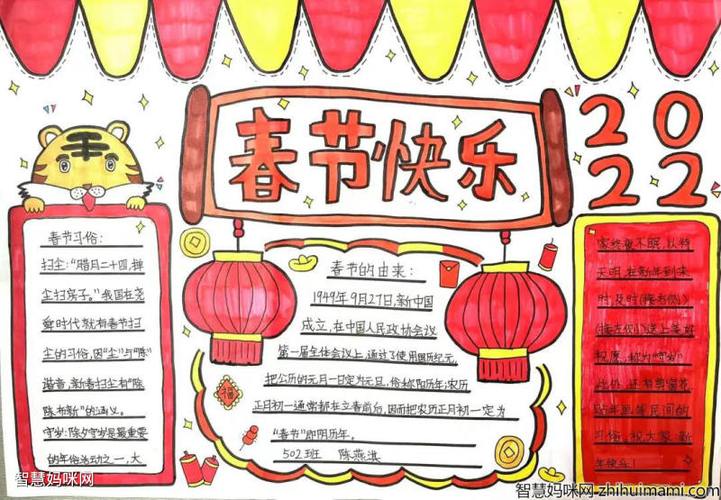 春节快乐
2022
春节习俗:
扫尘:“腊月二十四,掸
尘扫房子。”我国在尧
舜时代就有春节扫
尘的习俗,因“尘”与“陈”
谐音,新春扫尘有“除
陈布新”的涵义。
守岁:除夕守岁是最重要
的年俗活动之一,大
春节的由来:
1949年9月27日,新中国
成立,在中国人民政协会议
第一届全体会议上,通过了使用国历纪元,
把公历的元月一日定为元旦,俗称阳历年;农历
正月初一通常都在立春前后,因而把农历正月初一定为
“春节”即阴历年。
502班 陈燕淇
福
家终夜不眠,以待
天明,在新年到来
时,及时
送上美好
祝愿,称为“守岁”
此外,还有剪窗花
贴年画等民间的
习俗,祝大家:新
年快乐!
智慧妈咪网
智慧妈咪网 zhihuimami.com